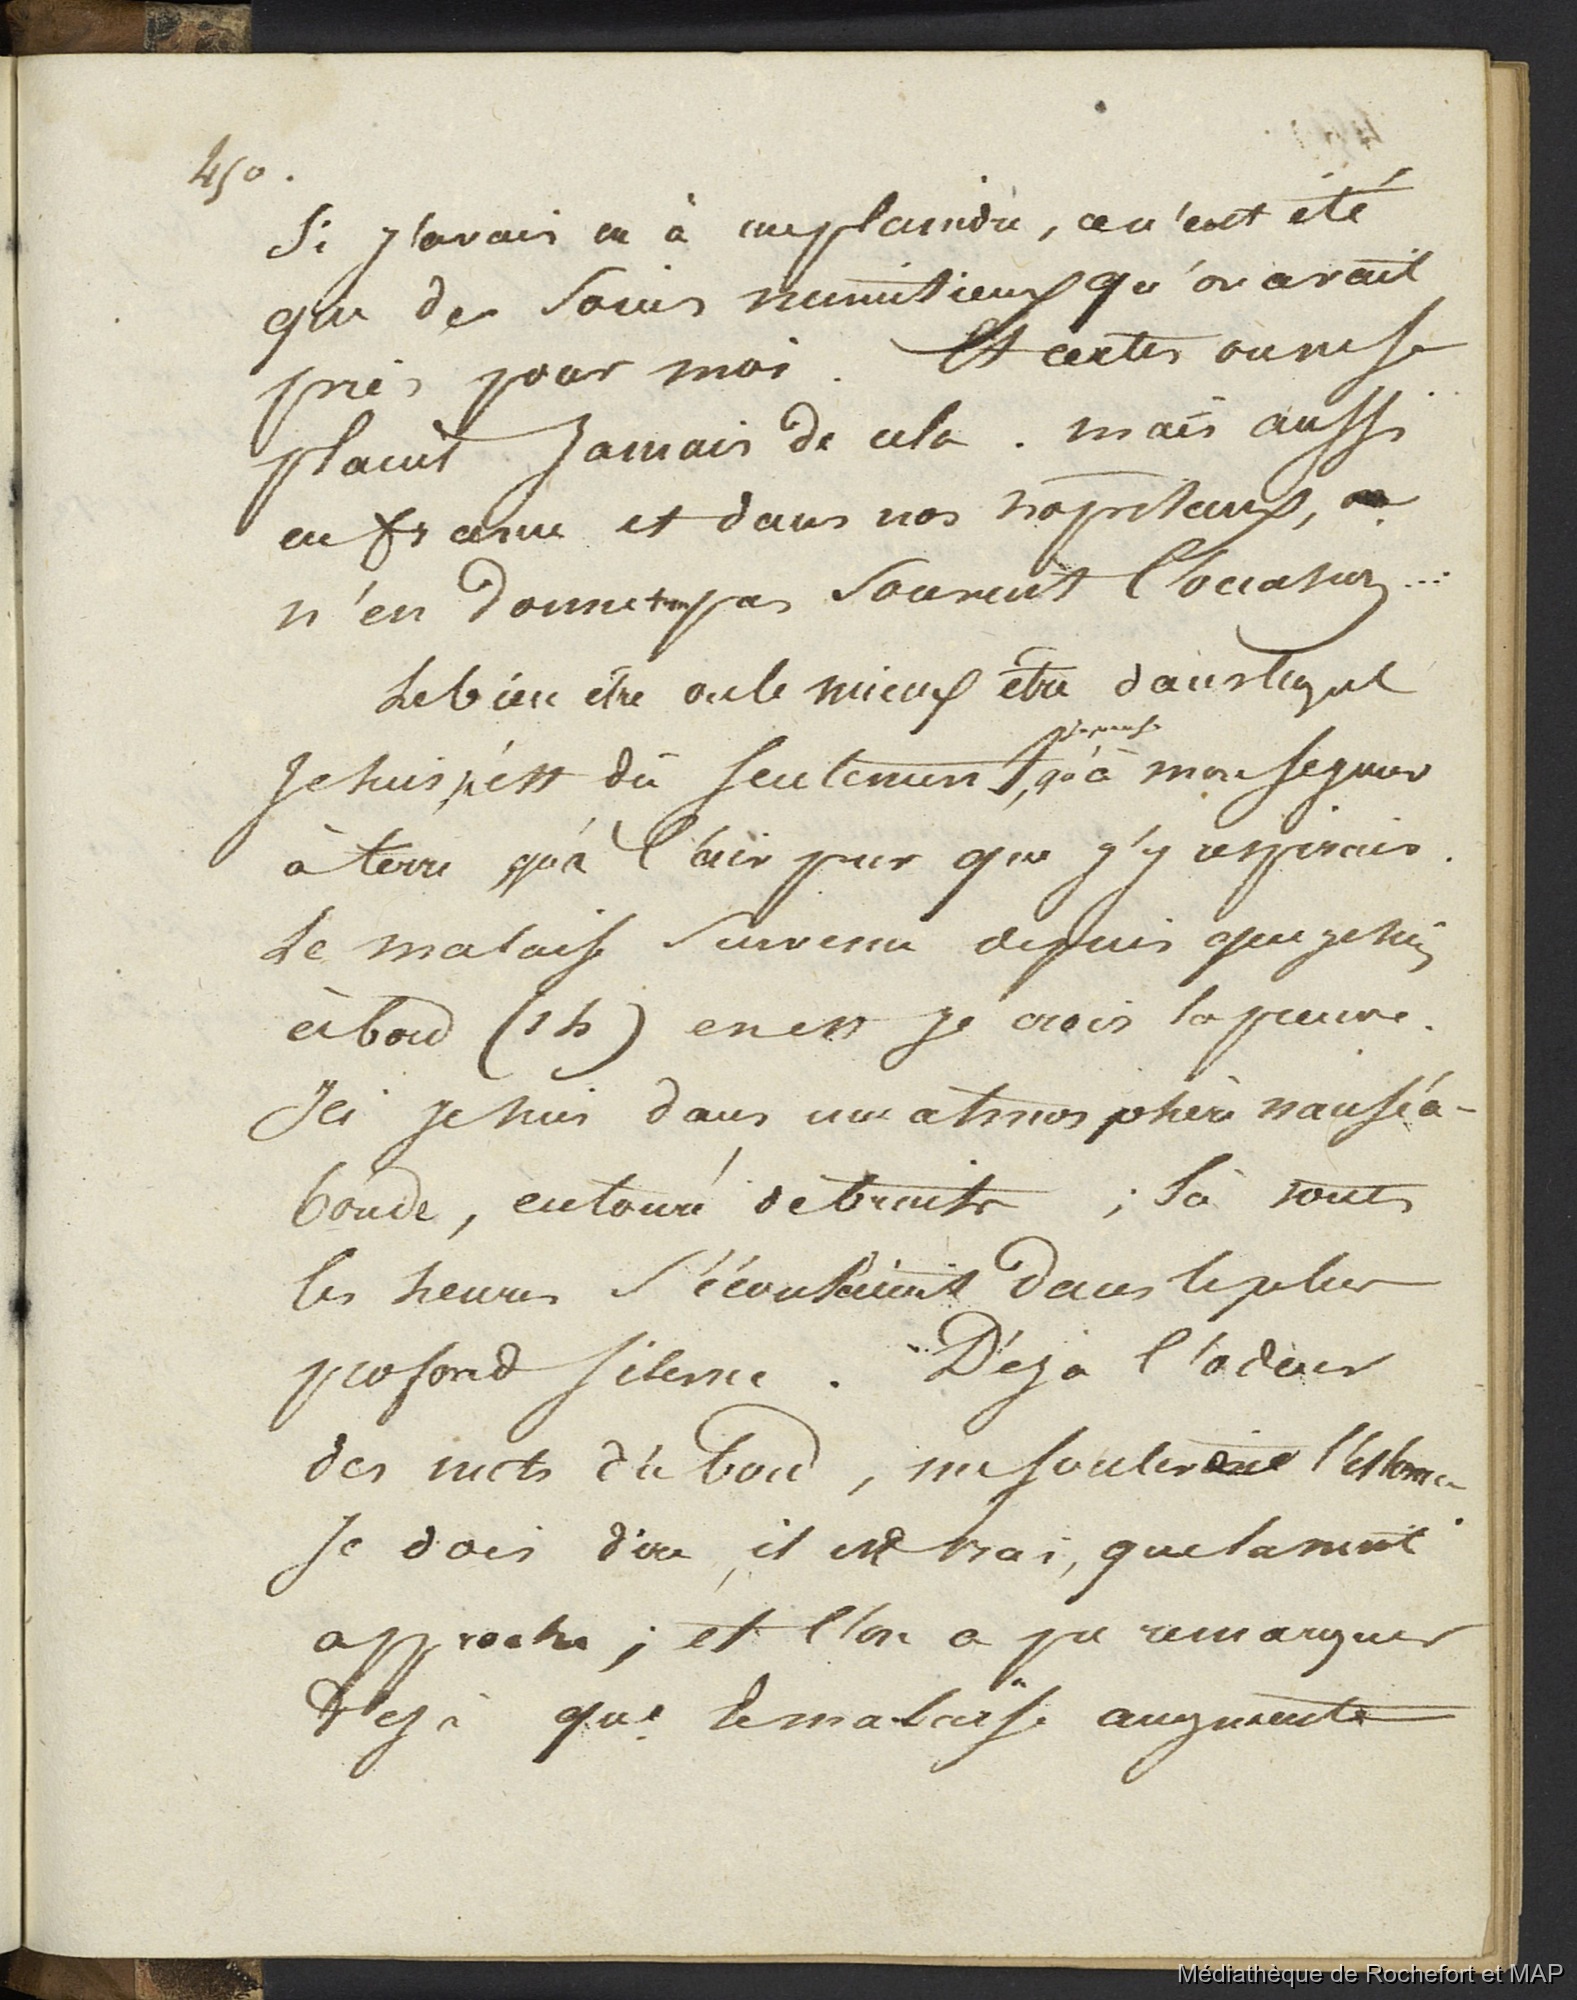 450.
Si j'avais eu à me plaindre, ce n'eut été
que des soins minutieux qu'on avait
pris pour moi. Et certes on ne se
plaint Jamais de cela. mais aussi
en france et dans nos hopitaux, on
n'en donne pas souvent l'occasion ...
Le bien être ou le mieux être dans lequel
je pense
Je suis, n'est dû seulement, qu'à mon sejour
à terre qu'à l'air pur que j'y respirais.
Le malaise survenu depuis que je suis
à bord (1h) en est je crois la preuve.
Ici je suis dans une atmosphère nauséa-
bonde, entouré de bruits ; là toutes
les heures s'écoulaient dans le plus
profond silence. Déja l'odeur
des mets du bord, me soulevait l'estomac
Je dois dire, il est vrai, que la nuit
approche ; et l'on a pu remarquer
déjà que le malaise augmente
Médiathèque de Rochefort et MAP